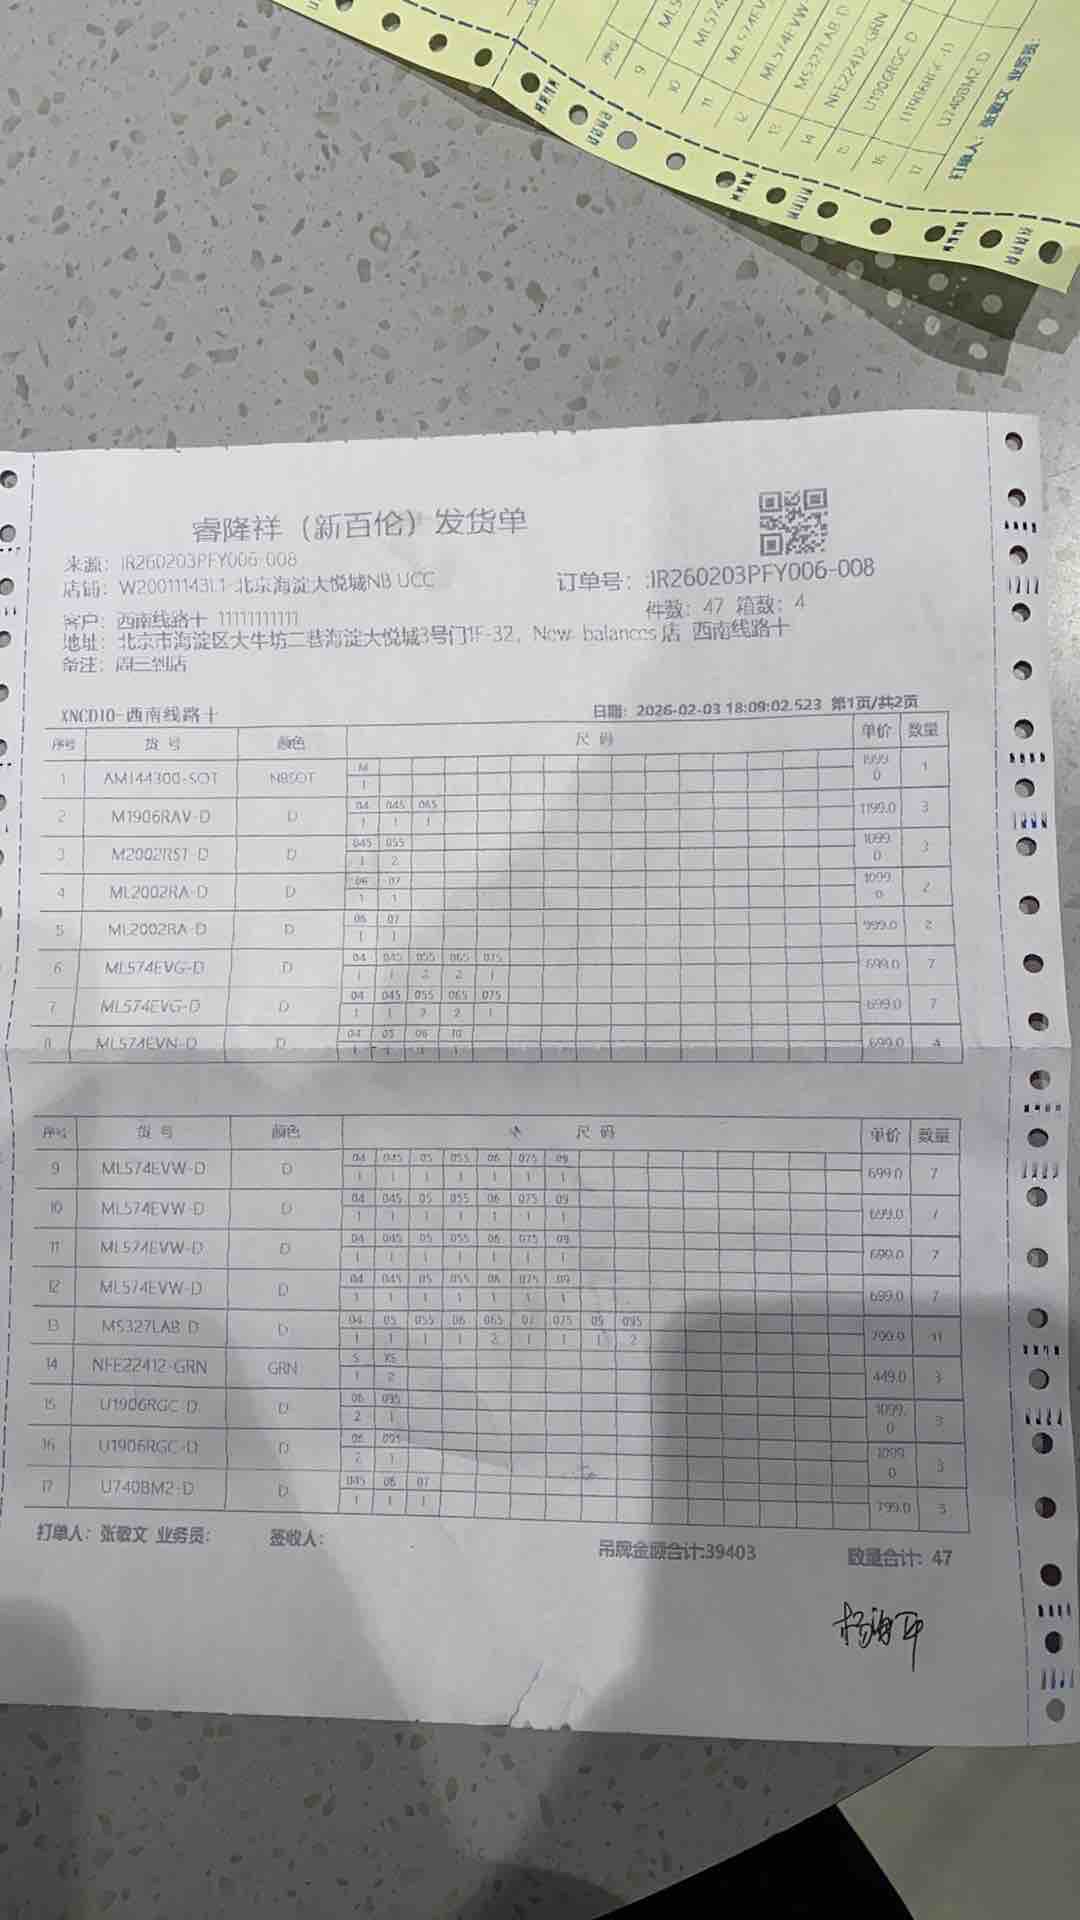 睿隆祥（新百伦）发货单
来源：IR260203PFY006-008
店铺：W20011143L1-北京海淀大悦城NB UCC
订单号：:IR260203PFY006-008
件数：47 箱数：4
客户：西南线路十 11111111111
地址：北京市海淀区大牛坊二巷海淀大悦城3号门1F-32，New balances店 西南线路十
备注：周三到店
XNCD10-西南线路十
日期：2026-02-03 18:09:02.523 第1页/共2页
序号 货号 颜色 尺码 单价 数量
1 AM144300-SOT NBSOT M 1999.0 1
1
2 M1906RAV-D D 04 045 065 1199.0 3
1 1 1
3 M2002RST-D D 045 055 1099.0 3
1 2
4 ML2002RA-D D 06 07 1099.0 2
1 1
5 ML2002RA-D D 06 07 999.0 2
1 1
6 ML574EVG-D D 04 045 055 065 075 699.0 7
1 1 2 2 1
7 ML574EVG-D D 04 045 055 065 075 699.0 7
1 1 2 2 1
8 ML574EVN-D D 04 05 06 10 699.0 4
1 1 1 1
序号 货号 颜色 尺码 单价 数量
9 ML574EVW-D D 04 045 05 055 06 075 09 699.0 7
1 1 1 1 1 1 1
10 ML574EVW-D D 04 045 05 055 06 075 09 699.0 7
1 1 1 1 1 1 1
11 ML574EVW-D D 04 045 05 055 06 075 09 699.0 7
1 1 1 1 1 1 1
12 ML574EVW-D D 04 045 05 055 06 075 09 699.0 7
1 1 1 1 1 1 1
13 MS327LAB-D D 04 05 055 06 065 07 075 09 095 799.0 11
1 1 1 1 2 1 1 1 2
14 NFE22412-GRN GRN S XS 449.0 3
1 2
15 U1906RGC-D D 06 095 1099.0 3
2 1
16 U1906RGC-D D 06 095 1099.0 3
2 1
17 U740BM2-D D 045 06 07 799.0 3
1 1 1
打单人：张敏文 业务员： 签收人： 吊牌金额合计:39403 数量合计：47
杨海平
序号
9
10
11
12
13 MS327LAB-D
14 NFE22412-GRN
15 U1906RGC-D
16
17 U740BM2-D
打单人：张敏文 业务员：